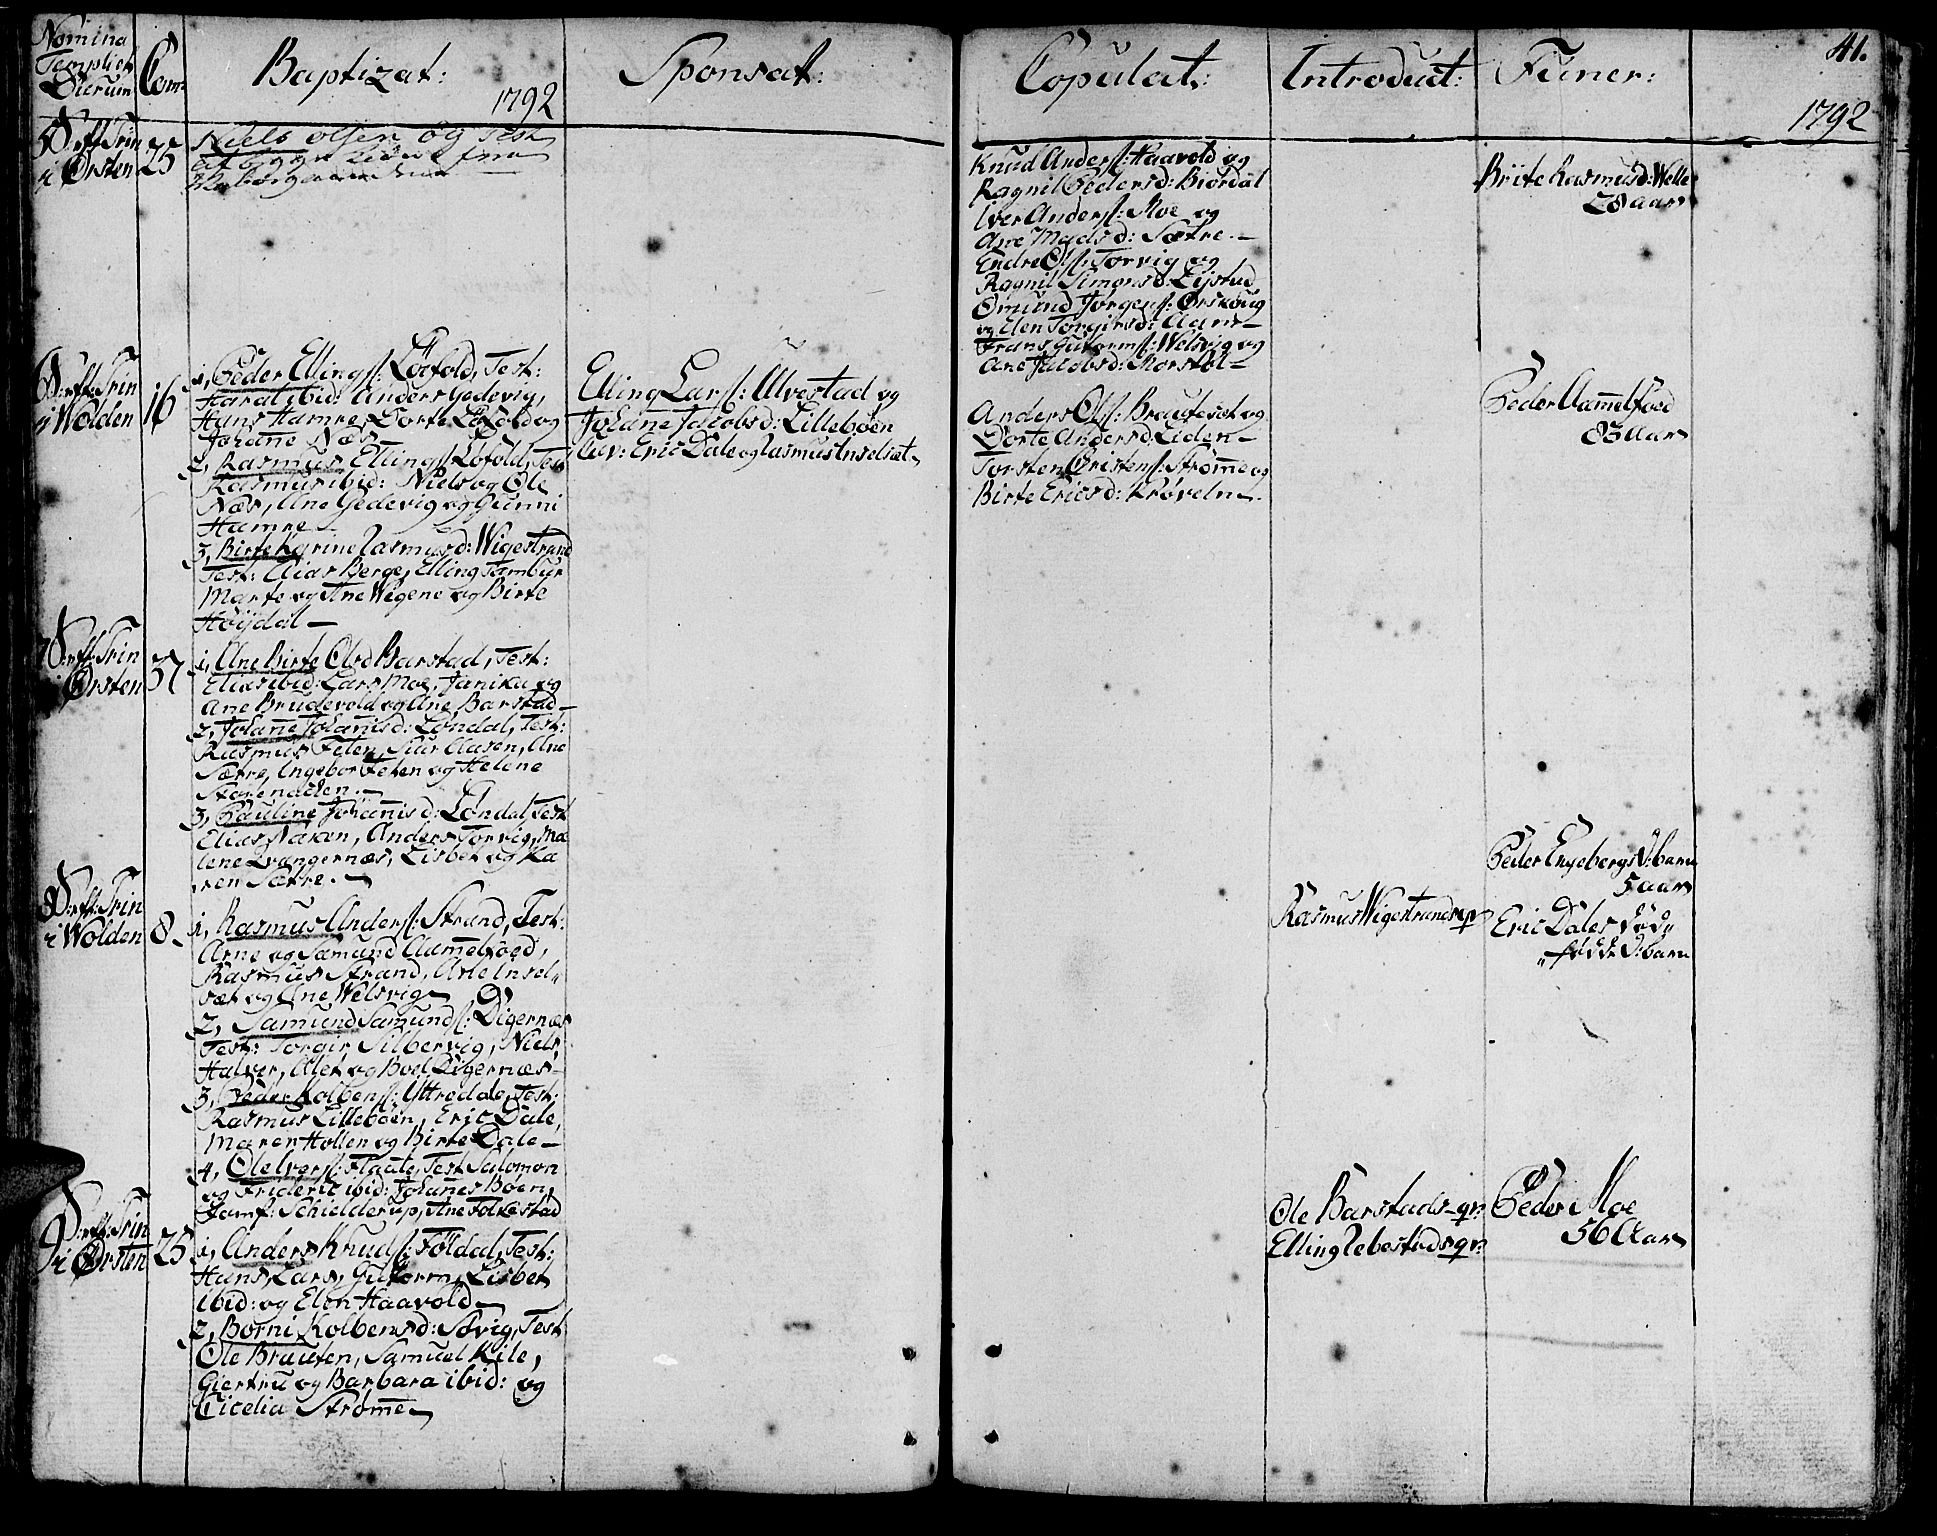 Nomina
Templi et
Dierum
Com:
Baptizat:
1792
Sponsat:
Copulat:
Introduct:
Funer:
41.
1792
5 S: eft: Trin
i Ørsten
25
Niels olsen og Test
Knud Anders∫: Haavold og
Ragnil Peders d: Biørdal
Iver Anders∫: Moe og
Ane Mads d: Sætre. —
Endre Ols∫: Torvig og
Ragnil Simons d: Lijstad
Omund Jørgens∫: Ørskoug
og Elen Torgirs d: Aam —
Frans Gutorms∫: Welsvig og
Ane Jacobs d: Morstøl —
Brite Rasmus d: Welle
28 aar
6 S: eft: Trin
i Wolden
16
1, Peder Ellings∫: Løfold, Test:
Haral ibid: Anders Gedevig,
Hans Hamre, Dorte Løfold og
Johane Næs
2, Rasmus Ellings∫: Løfold, Test
Rasmus ibid: Niels og Ole
Næs, Ane Gedevig og Gunni
Hamre —
3, Birte Karine Rasmus d: Wigestrand
Test: Elias Berge, Elling Tambur
Marte og Ane Wigene og Birte
Høijdal —
Elling Lars∫: Ulvestad og
Johane Jacobs d: Lillebøen
Cav: Eric Dale og Rasmus Inselset
Anders Ols∫: Brauteset og
Dorte Anders d: Liden —
Torsten Cristens∫: Strøme og
Birte Erics d: Krøveln
Peder Aamelfoed
83 Aar
7 S: eft: Trin
i Ørsten
37
1, Ane Birte Ols d Barstad, Test:
Elias ibid: Lars Moe, Janika og
Ane Brudevold og Ane Barstad
2, Johane Johanis d: Løndal, Test:
Rasmus Feten, Siur Aasen, Ane
Sætre, Ingebor Feten og Helene
3, Pauline Johanis d: Løndal, Test
Elias Naken, Anders Torvig, Ma
lene Qvangernæs, Lisbet og Ka
ren Sætre. —
Peder Engebergs D: barn
5 aar
8 S: eft: Trin
i Wolden
8
1, Rasmus Anders∫: Strand, Test:
Arne og Samund Aamelfoed,
Rasmus Strand, Ane Insel
sæt og Ane Welsvig
2, Samund Samunds∫: Digernæs
Test: Torgir Silbervig, Niels,
Halver, Alet og Boel Digernæs —
3, Peder Kolbens∫: Yttredale, Test:
Rasmus Lillebøen, Eric Dale,
Maren Hollen og Birte Dale —
4, Ole Ivers∫: Flaate, Test Salomon
og Frideric ibid: Johanes Bøen,
Jomf: Schielderup, Ane Folkestad
Rasmus Wigestrands qv
Eric Dales død
fødde D: barn
9 S: eft: Trin
i Ørsten
25
1, Anders Knuds∫: Føldal, Test:
Hans, Lars, Gutorm, Lisbet
ibid: og Elen Haavold
2, Borni Kolbens d: Søvig, Test
Ole Brauten, Samuel Kile,
Giertru og Barbara ibid: og
Cicelia Strøme
Ole Barstads qv:
Elling Rebestads qv:
Peder Moe
56 Aar